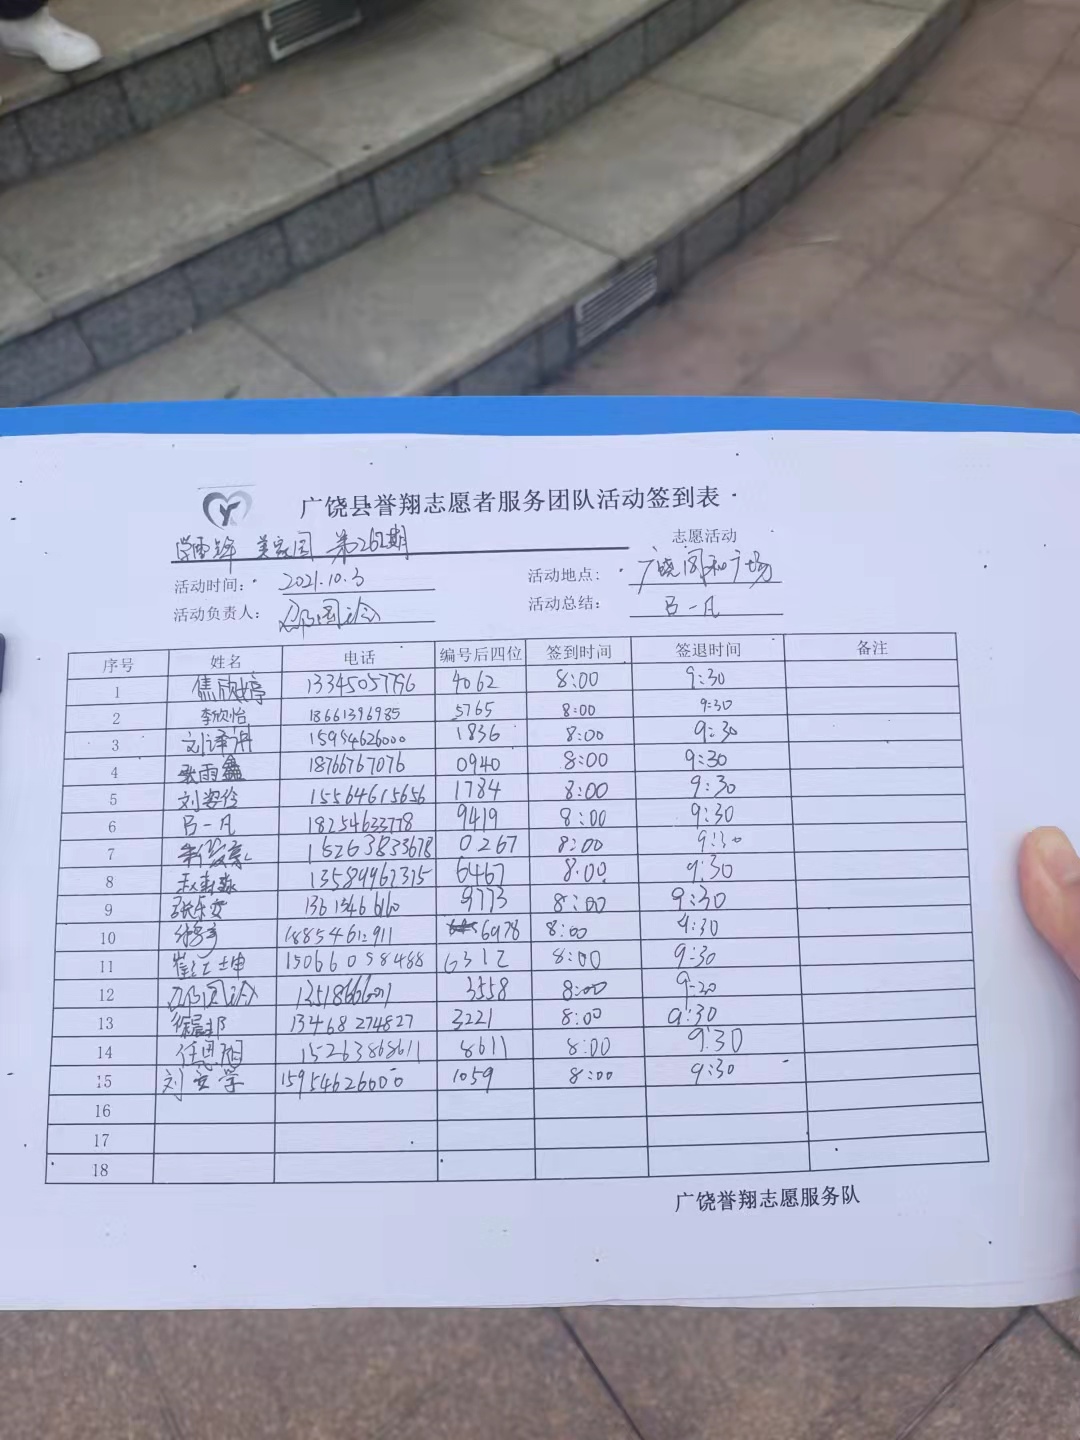 广饶县誉翔志愿者服务团队活动签到表
学雷锋 美家园 第262期 志愿活动
活动时间: 2021.10.3 活动地点: 广饶阁和广场
活动负责人: 活动总结: 吕一凡
序号 姓名 电话 编号后四位 签到时间 签退时间 备注
1 焦欣婷 13345057796 4062 8:00 9:30
2 李欣怡 18661396985 5765 8:00 9:30
3 刘译涓 15954626000 1836 8:00 9:30
4 张雨鑫 18766767076 0940 8:00 9:30
5 刘姿伶 15564615656 1784 8:00 9:30
6 吕一凡 18254633778 9419 8:00 9:30
7 15263833678 0267 8:00 9:30
8 13589967375 6467 8:00 9:30
9 张乐安 9773 8:00 9:30
10 6978 8:00 9:30
11 崔 坤 15066058488 6312 8:00 9:30
12 3558 8:00 9:30
13 13468274827 3221 8:00 9:30
14 任思阳 15263868611 8611 8:00 9:30
15 刘安学 15954626000 1059 8:00 9:30
16
17
18
广饶誉翔志愿服务队